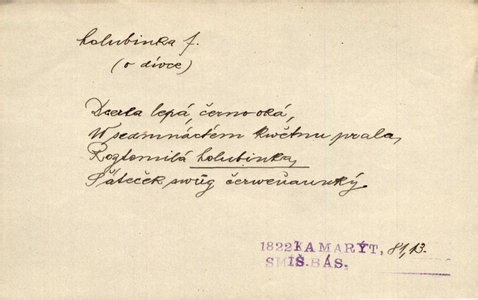 holubinka f.
(o dívce)
Dcerka lepá, černooká,
W sedmnáctém kwětnu prala,
Roztomilá holubinka,
Šáteček swůg čerweňaunký.
1822 KAMARÝT, 81,13.
SMÍŠ. BÁS.